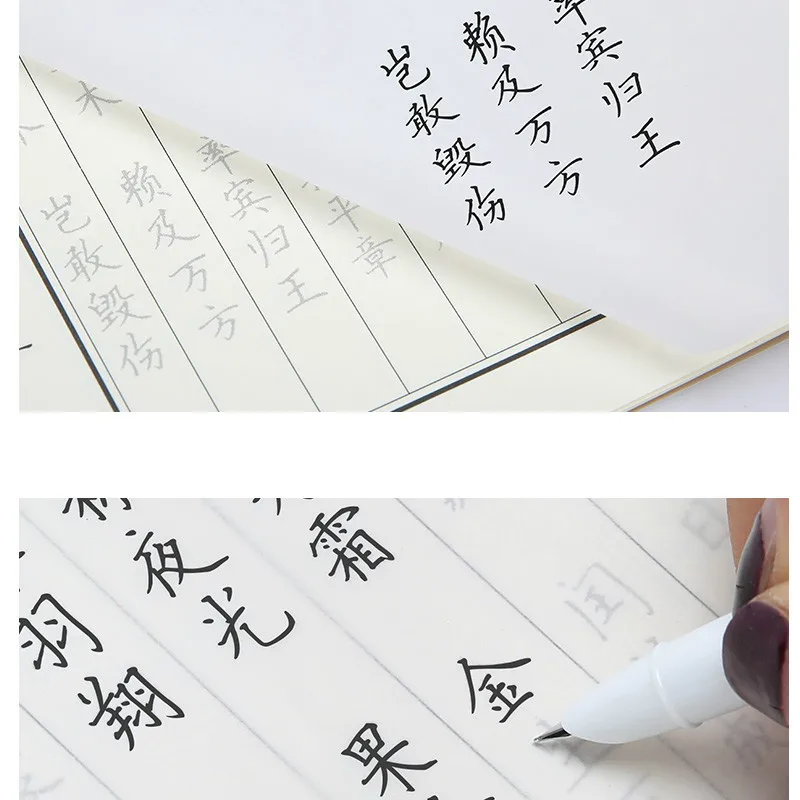 平章
率宾归王
赖及万方
岂敢毁伤
率宾归王
赖及万方
岂敢毁伤
木
闰
霜
金
夜光
果
羽翔